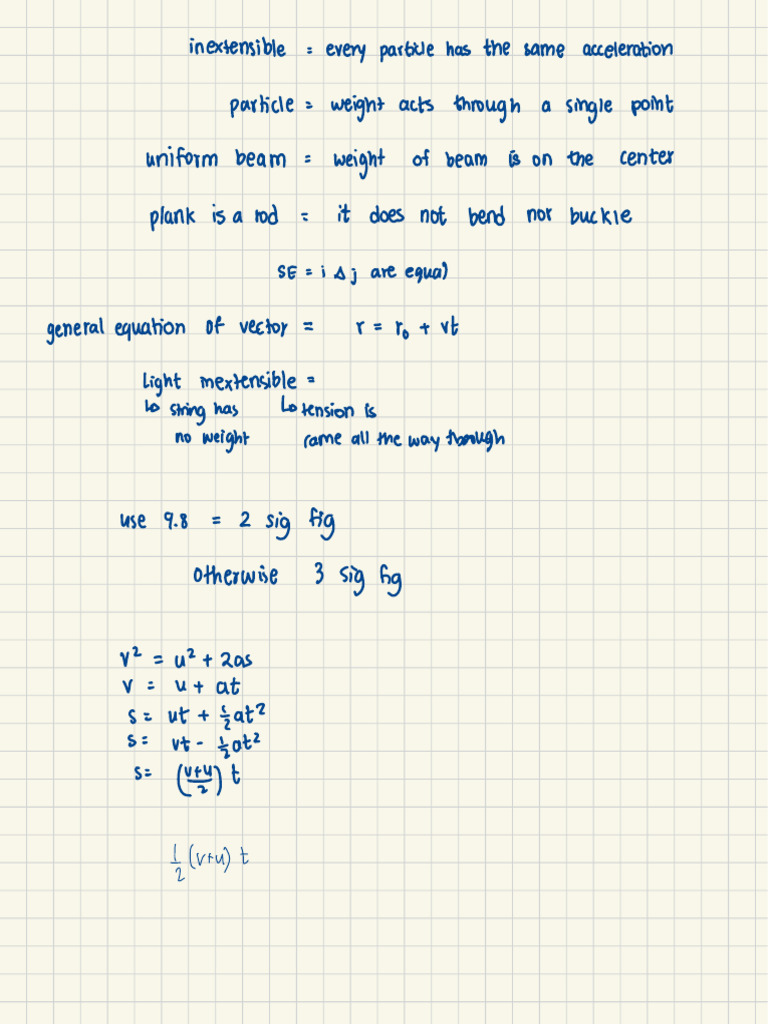 inextensible = every particle has the same acceleration
particle = weight acts through a single point
uniform beam = weight of beam is on the center
plank is a rod = it does not bend nor buckle
SE = i & j are equal
general equation of vector = r = r₀ + vt
Light inextensible =
↳ string has ↳ tension is
no weight same all the way through
use 9.8 = 2 sig fig
otherwise 3 sig fig
v² = u² + 2as
v = u + at
s = ut + ½at²
s = vt - ½at²
s = ((v+u)/2) t
½(v+u) t